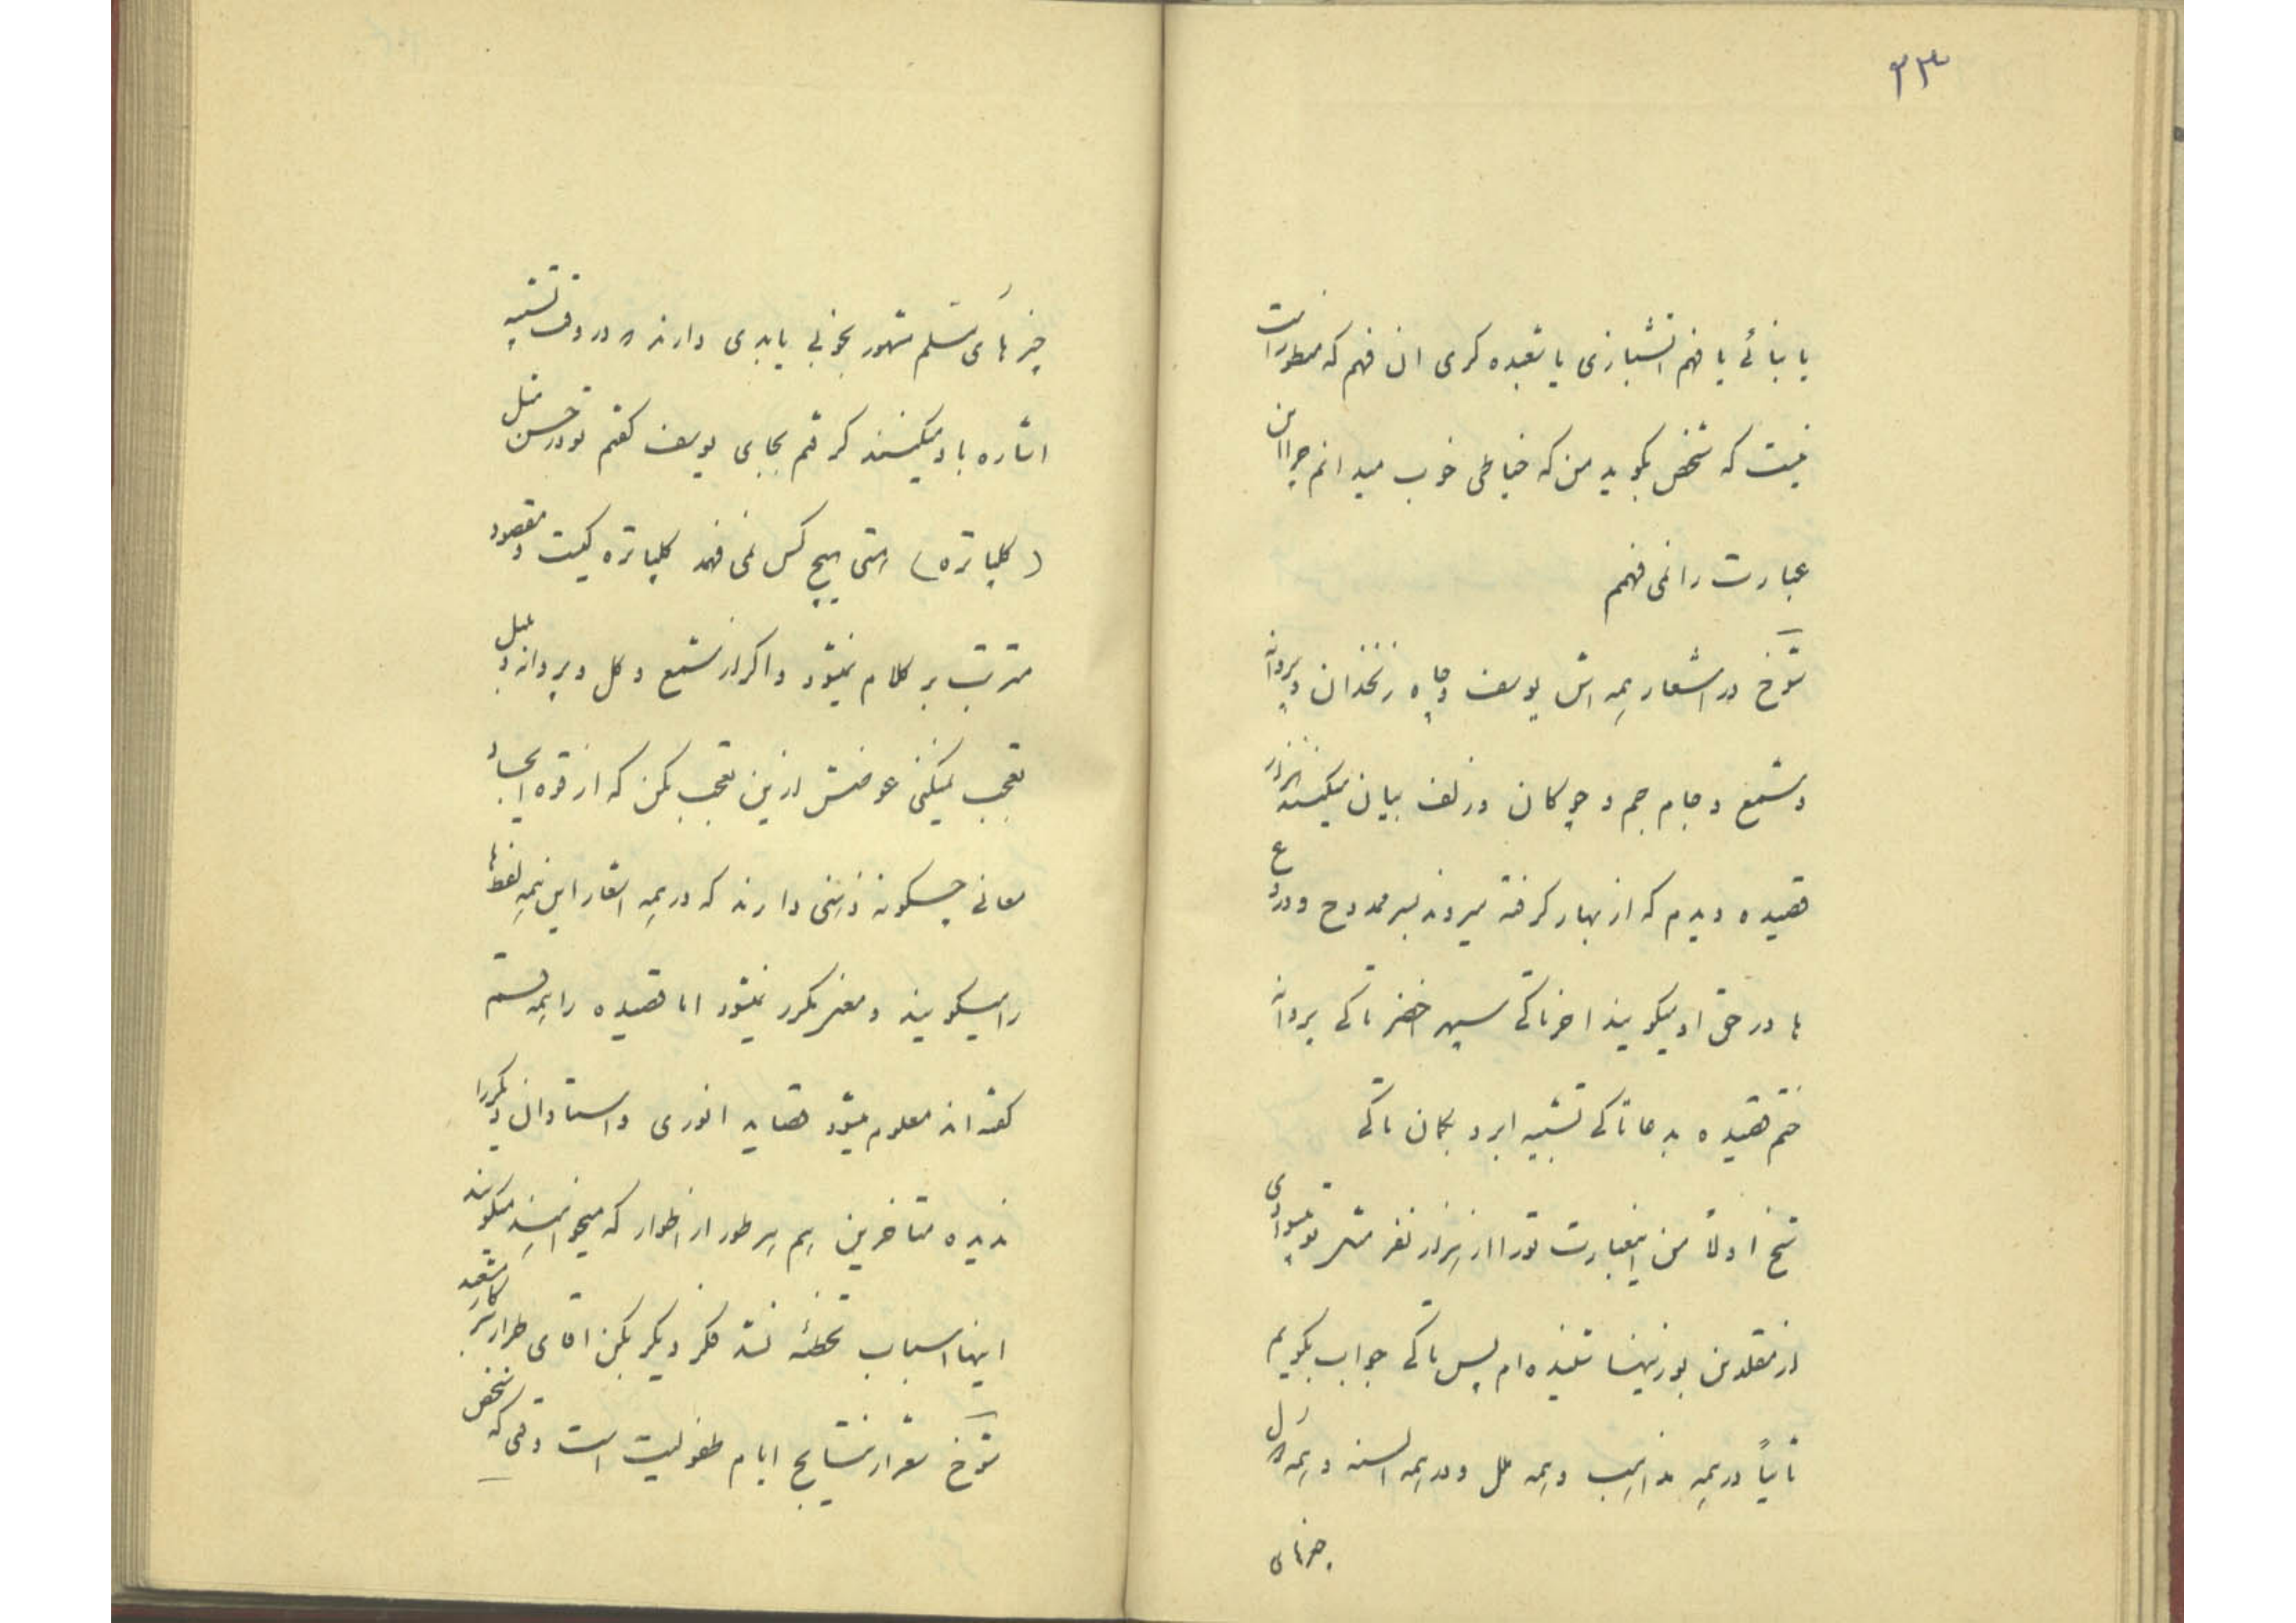 ۳۳
یا بنائی یا فهم اتشبازی یا شعبده کری ان فهم که منظور است
نیست که شخص بکوید من که خیاطی خوب میدانم چرا این
عبارت را نمی فهمم
شوخ در اشعار همه اش یوسف و چاه زنخدان و پروانه
و شمع و جام جم و چوکان و زلف بیان میکنند هزار
قصیده دیدم که از بهار کرفته میروند بسر ممدوح و دروغ
ها در حق او میکویند اخر تا کی سپهر اخضر تا کی پروانه
ختم قصیده بدعا تا کی تشبیه ابرو بکمان تا کی
شخ اولاً من اینعبارت تو را از هزار نفر مثل تو بیسوادی
از مقلدین بوزینها شنیده ام پس تا کی جواب بکویم
ثانیاً در همه مذاهب و همه ملل و در همه السنه و همه
چیزهای
چیزهای مسلم مشهور بخوبی یا بدی دارند در وقت تشبیه
اشاره باو میکنند کر تم بجای یوسف کفتم تو در حسن مثل
(کلپاتره) استی هیچ کس نمی فهمد کلپاتره کیست و مقصود
مترتب بر کلام نمیشود و اکر از شمع و کل و پروانه و بلبل
تعجب میکنی عوضش ازین تعجب بکن که از قوه ایجاد
معانی چکونه ذهنی دارند که در همه اشعار این همه لفظها
را میکویند و معنی مکرر نمیشود اما قصیده را همه قسم
کفته اند معلوم میشود قصاید انوری و استادان دیکر را
ندیده متاخرین هم هر طور از اطوار که میخواهند میکویند
اینها اسباب تخطئه نشد فکر دیکر بکن اقای طرار
شوخ شعر از نتایج ایام طفولیت است وقتی که شخص